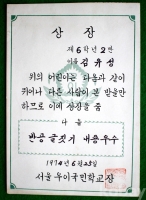 상장
제6학년2반
이름 김규성
위의 어린이는 다음과 같이
뛰어나 다른 사람의 본 받을만
하므로 이에 상장을 줌
다음
반공글짓기 내용우수
1974년6월25일
서울우이국민학교장